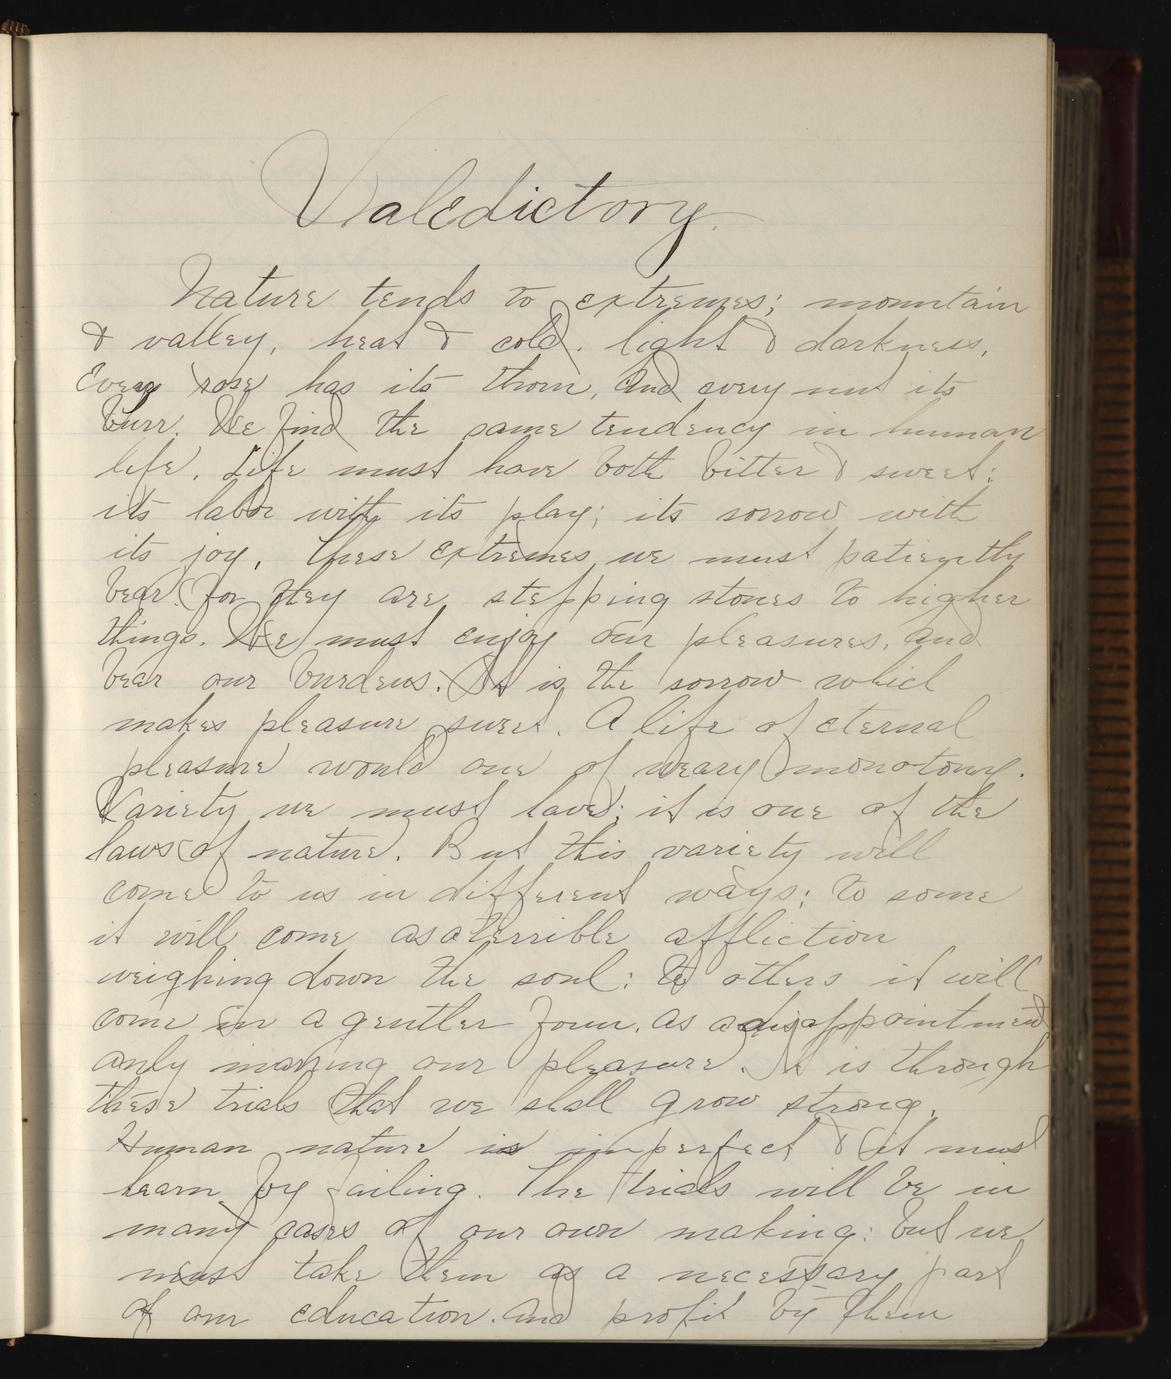 Valedictory.
Nature tends to extremes; mountain
& valley, heat & cold, light & darkness,
Every rose has its thorn, and every nut its
burr. We find the same tendency in human
life. Life must have both bitter & sweet;
its labor with its play; its sorrow with
its joy. These extremes we must patiently
bear. For they are stepping stones to higher
things. We must enjoy our pleasures, and
bear our burdens. It is the sorrow which
makes pleasure sweet. A life of eternal
pleasure would one of weary monotony.
Variety we must have; it is one of the
laws of nature. But this variety will
come to us in different ways; to some
it will come as a terrible affliction
weighing down the soul; to others it will
come in a gentler form, as a disappointment
only marring our pleasure. It is through
these trials that we shall grow strong.
Human nature is imperfect & it must
learn by failing. The trials will be in
many cases of our own making; but we
must take them as a necessary part
of our education. and profit by them